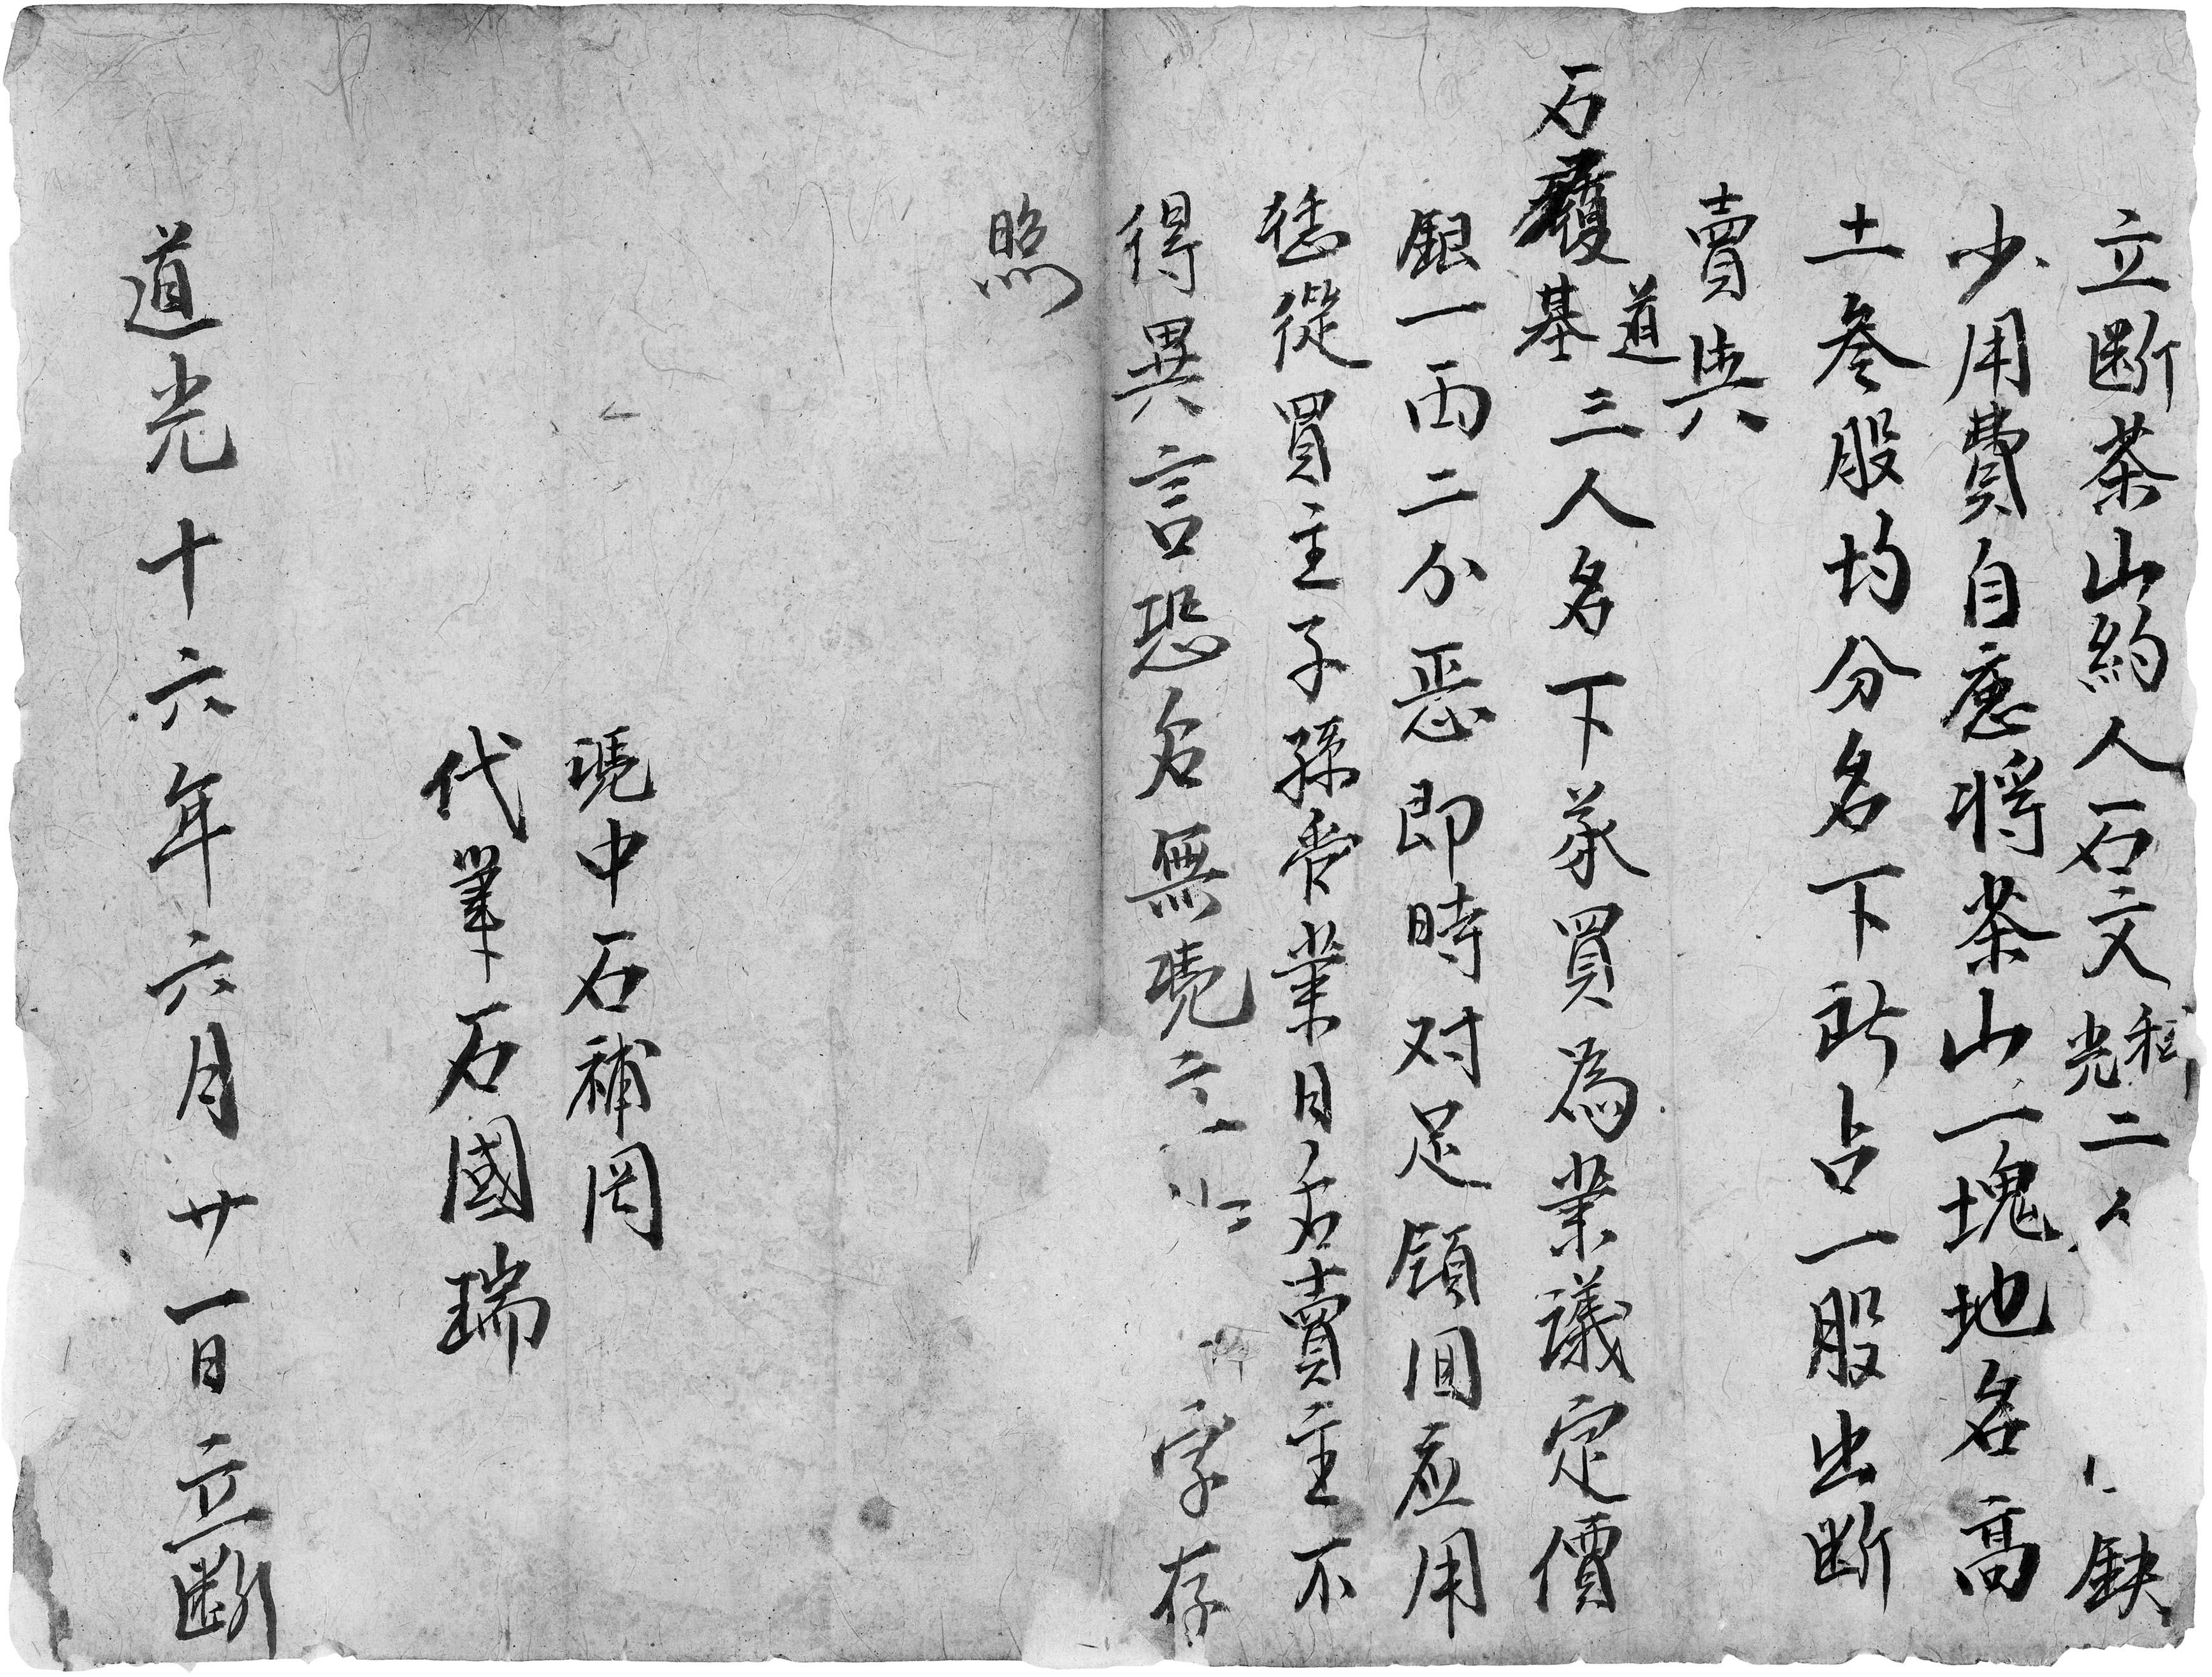 立断茶山約人石文程光二人缺
少用費自應将茶山一塊地名高
土叁股均分名下所占一股出断
賣與
石 道基三人名下承買為業議定價
銀一両二分恶即時对足領囬應用
恁從買主子孫管業日后賣主不
得異言恐后無凴立字存
照
凴中石補岡
代筆石國瑞
道光十六年六月廿一日立断